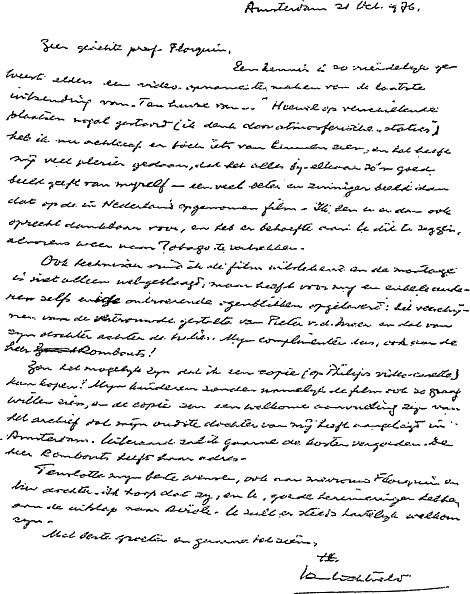 Amsterdam 21 Oct. 1976.
Zeer geachte prof. Florquin,
Een kennis is zo vriendelijk ge-
weest elders een video-opname te maken van de laatste
uitzending van "Ten huize van..." Hoewel op verschillende
plaatsen nogal gestoord (ik denk door atmosferische "statics")
heb ik nu achteraf er toch iets van kunnen zien, en het heeft
mij veel plezier gedaan, dat het alles bij elkaar zo'n goed
beeld geeft van myself – een veel beter en zuiniger beeld dan
dat op de in Nederland opgenomen film. Ik ben u er dan ook
oprecht dankbaar voor, en het is behoefte aan u dit te zeggen,
alvorens weer naar Tobago te vertrekken.
Ook technisch vind ik de film uitstekend en de montage
is niet alleen welgeslaagd, maar heeft voor mij en enkele ande-
ren zelfs ontroerende ogenblikken opgeleverd: het verschij-
nen van de vertrouwde gestalte van Pieter v.d. Meer en dat van
zijn dochter achter de tralies. Mijn complimenten dus, ook aan de
heer Rombouts!
Zou het mogelijk zijn dat ik een copie (op Philips video-cassette)
kan kopen? Mijn kinderen zouden namelijk de film ook zo graag
willen zien, en de copie zou een welkome aanvulling zijn van
het archief dat mijn oudste dochter van mij heeft aangelegd in
Amsterdam. Uiteraard zal ik gaarne de kosten vergoeden. De
heer Rombouts heeft haar adres.
Tenslotte mijn beste wensen, ook aan mevrouw Florquin en
uw dochter. Ik hoop dat zij, en u, goede herinneringen hebben
aan de uitstap naar U zult er steeds hartelijk welkom
zijn.
Met beste groeten en gaarne tot ziens,